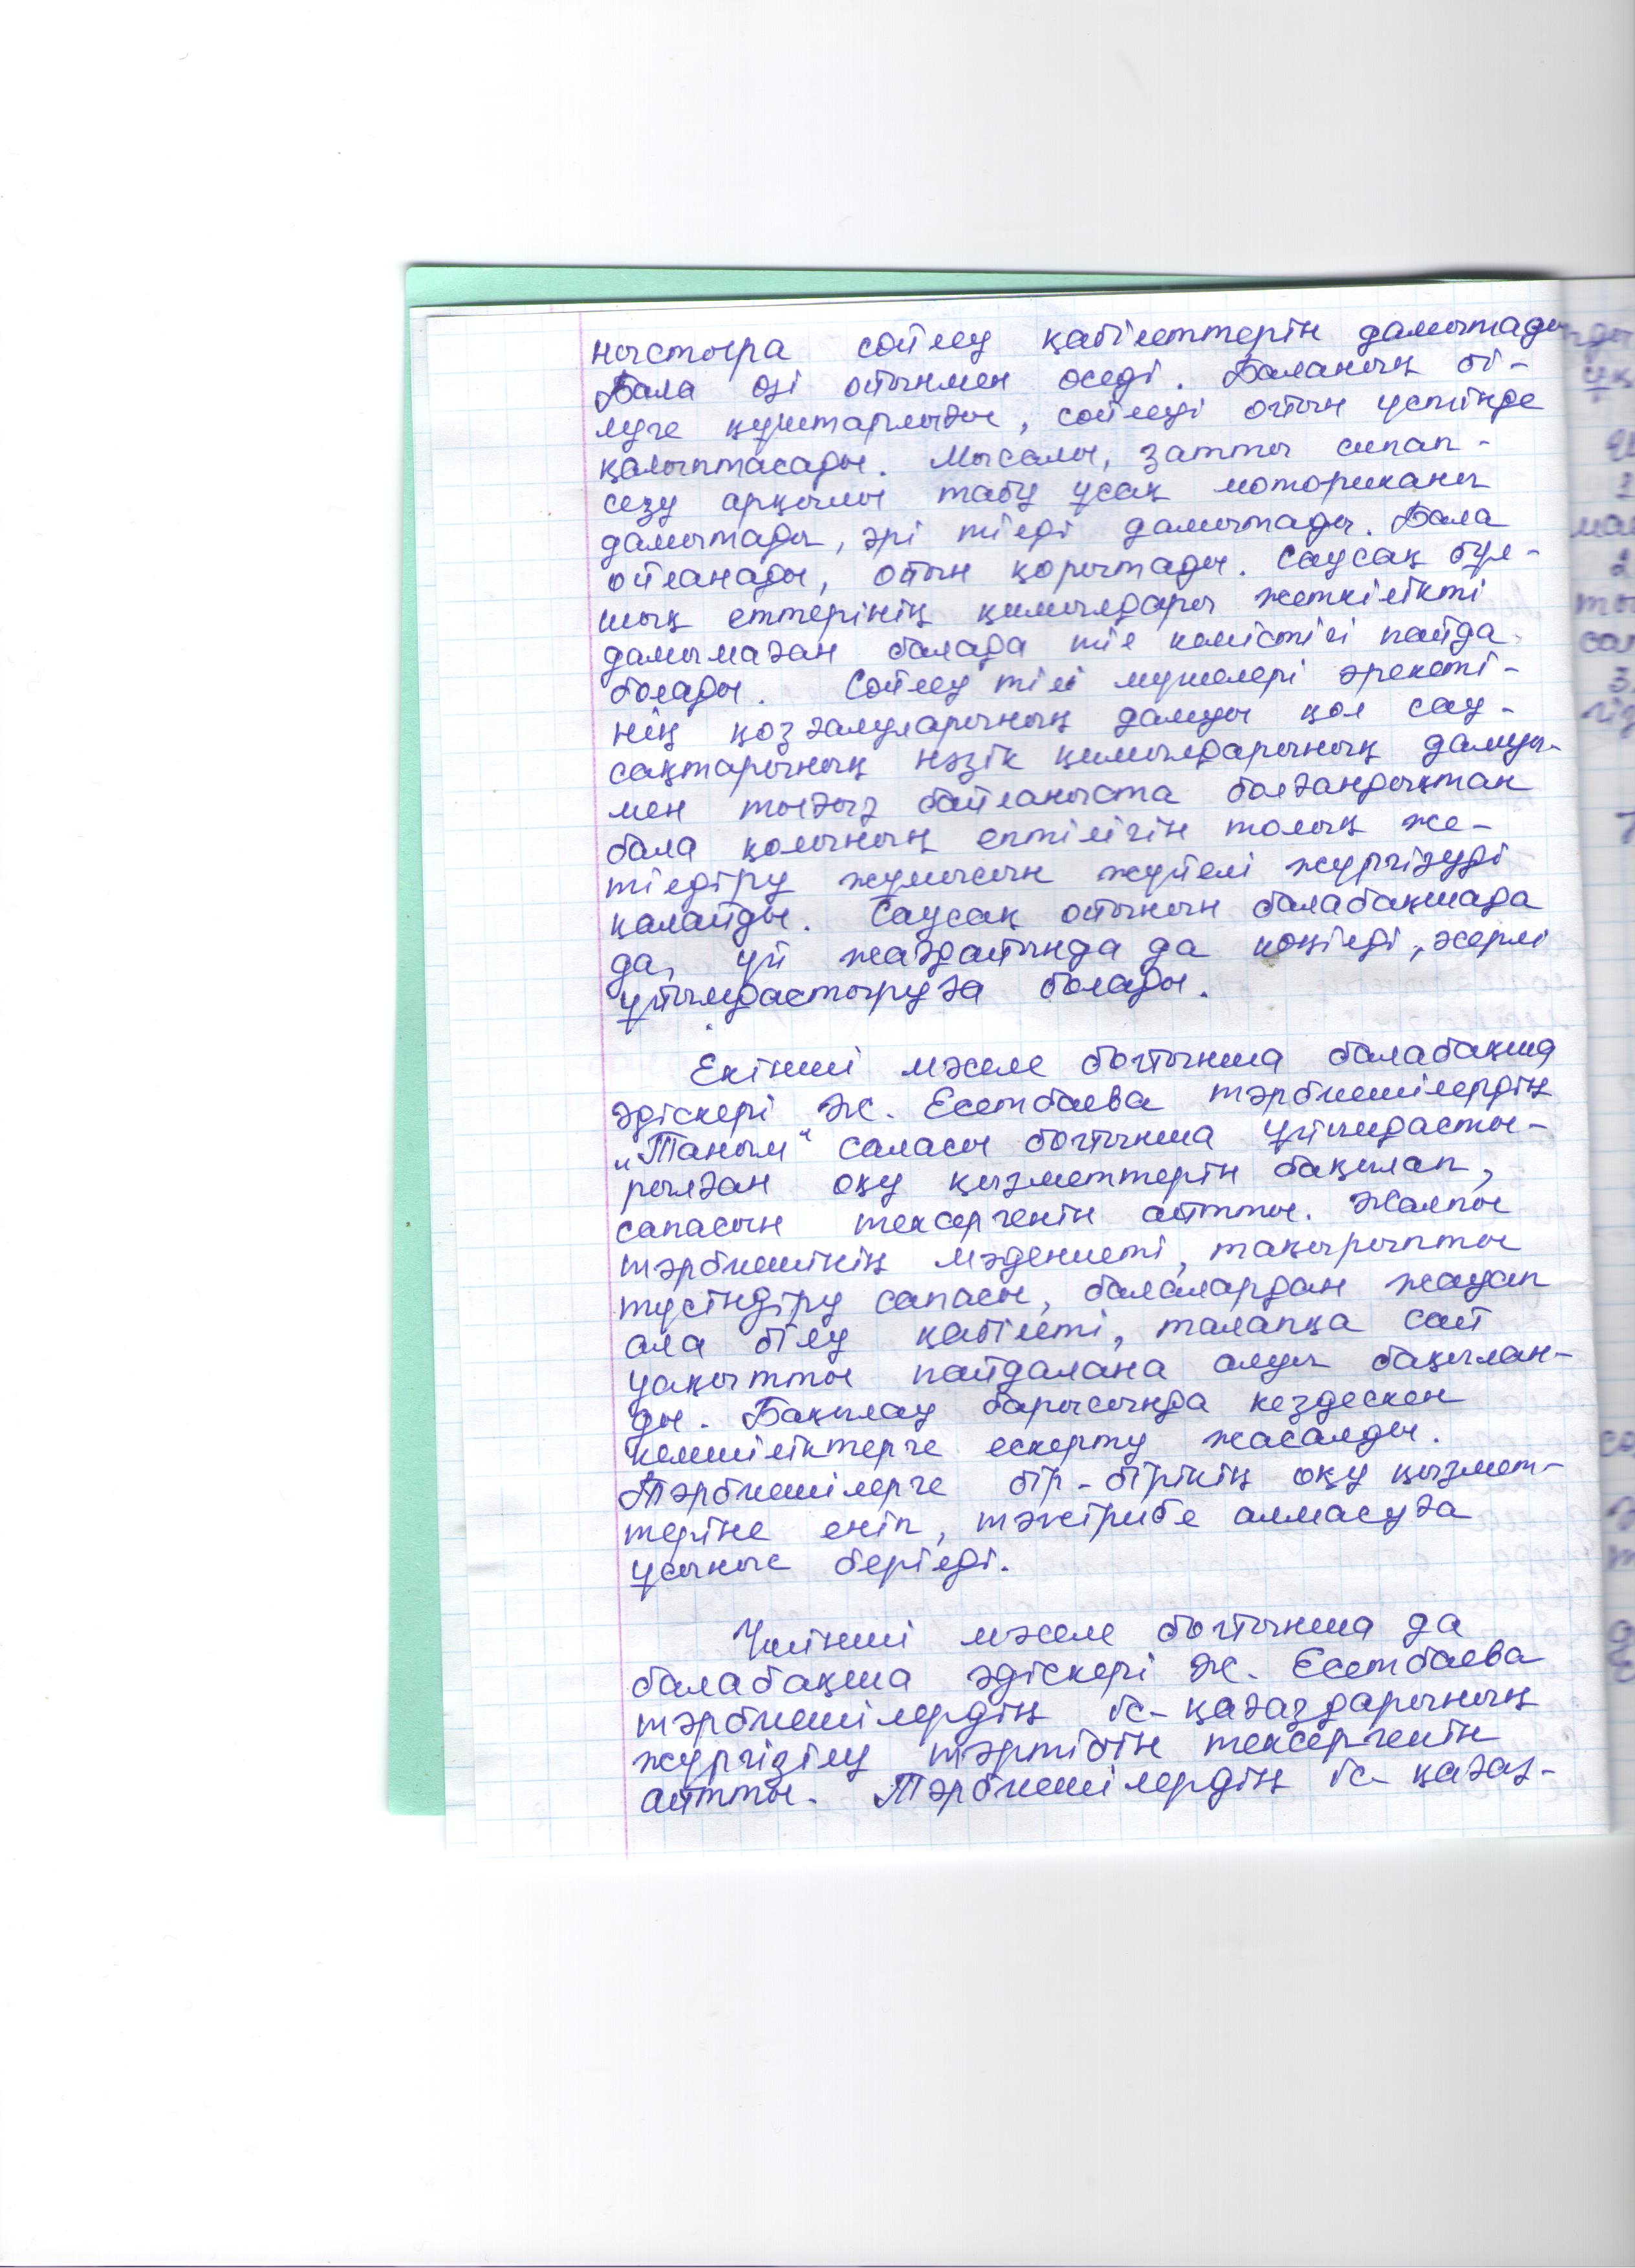 ныстыра сөйлеу қабілеттерін дамытады
Бала өзі ойынмен өседі. Баланың бі-
луге құштарлығы, сөйлеуі ойын үстінде
қалыптасады. Мысалы, затты сипап-
сезу арқылы табу ұсақ моториканы
дамытады, әрі тілді дамытады. Бала
ойланады, ойын қорытады. Саусақ бұл-
шық еттерінің қимылдары жеткілікті
дамымаған балада тіл кемістігі пайда
болады. Сөйлеу тілі мүшелері әрекеті-
нің қозғалуларының дамуы қол сау-
сақтарының нәзік қимылдарының дамуы-
мен тығыз байланыста болғандықтан
бала қолының ептілігін толық же-
тілдіру жұмысын жүйелі жүргізуді
қалайды. Саусақ ойынын балабақшада
да, үй жағдайында да көңілді, әсерлі
ұйымдастыруға болады.
Екінші мәселе бойынша балабақша
әдіскері Ж. Есетбаева тәрбиешілердің
„Таным“ саласы бойынша ұйымдасты-
рылған оқу қызметтерін бақылап,
сапасын тексергенін айтты. Жалпы
тәрбиешінің мәдениеті, тақырыпты
түсіндіру сапасы, балалардан жауап
ала білу қабілеті, талапқа сай
уақытты пайдалана алуы бақылан-
ды. Бақылау барысында кездескен
кемшіліктерге ескерту жасалды.
Тәрбиешілерге бір-бірінің оқу қызмет-
теріне еніп, тәжірибе алмасуға
ұсыныс берілді.
Үшінші мәселе бойынша да
балабақша әдіскері Ж. Есетбаева
тәрбиешілердің іс-қағаздарының
жүргізілу тәртібін тексергенін
айтты. Тәрбиешілердің іс-қағаз-